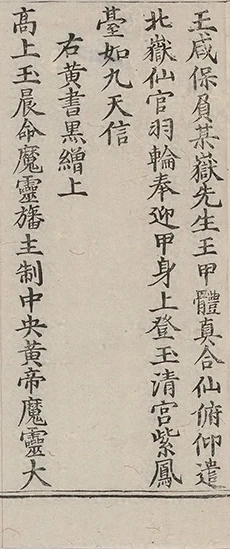 王咸保負某嶽先生王甲體真合仙俯仰遣
北嶽仙官羽輪奉迎甲身上登玉清宮紫鳳
臺如九天信
右黃書黑繒上
高上玉晨命魔靈旛主制中央黃帝魔靈大